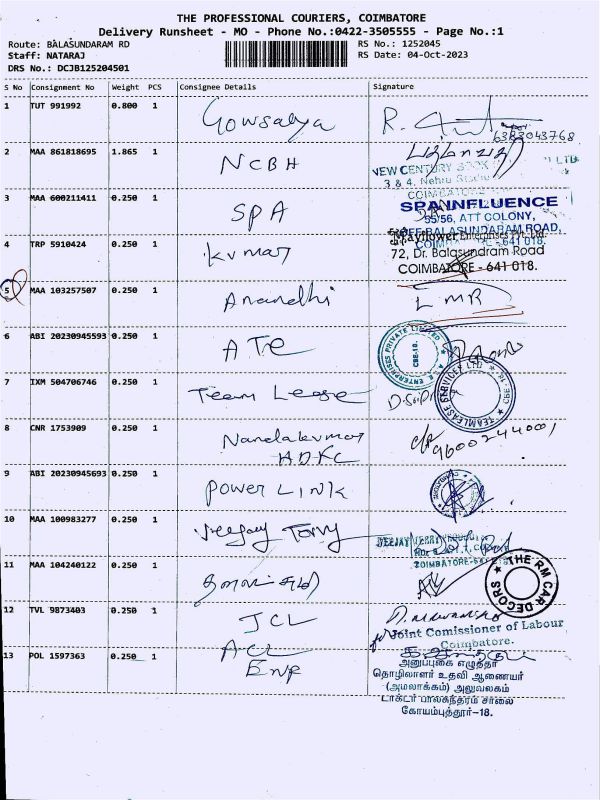 THE PROFESSIONAL COURIERS, COIMBATORE
Delivery Runsheet - MO - Phone No.:0422-3505555 - Page No.:1
Route: BALASUNDARAM RD
RS No.: 1252045
Staff: NATARAJ
RS Date: 04-Oct-2023
DRS No.: DCJB125204501
S No Consignment No Weight PCS Consignee Details Signature
1 TUT 991992 0.800 1 Gowsalya R.
6383043768
2 MAA 861818695 1.865 1 NCBH
NEW CENTURY BOOK LTD
3 & 4, Nehru
COIMBATORE
3 MAA 600211411 0.250 1 SPA
SPA INFLUENCE
55/56, ATT COLONY,
OFF BALASUNDARAM ROAD,
COIMBATORE - 641 018.
4 TRP 5910424 0.250 1 Kumar
Mayflower Enterprises Pvt. Ltd.
72, Dr. Balasundram Road
COIMBATORE - 641 018.
5 MAA 103257507 0.250 1 Anandhi LMR
6 ABI 20230945593 0.250 1 ATE
ENTERPRISES PRIVATE LIMITED
CBE-18.
7 IXM 504706746 0.250 1 Team Lease
TEAMLEASE SERVICES LTD
CBE-18
8 CNR 1753909 0.250 1 Nandakumar
ADKC
9600244001
9 ABI 20230945693 0.250 1 POWER LINK
10 MAA 100983277 0.250 1 Veejay Terry
VEEJAY TERRY
COIMBATORE-641
11 MAA 104240122 0.250 1
THE RM CAR DECORS
12 TVL 9873403 0.250 1 JCL
Joint Comissioner of Labour
Coimbatore.
13 POL 1597363 0.250 1 ACL
Enf
அனுப்புகை எழுத்தர்
தொழிலாளர் உதவி ஆணையர்
(அமலாக்கம்) அலுவலகம்
டாக்டர் பாலசுந்தரம் சாலை
கோயம்புத்தூர்-18.